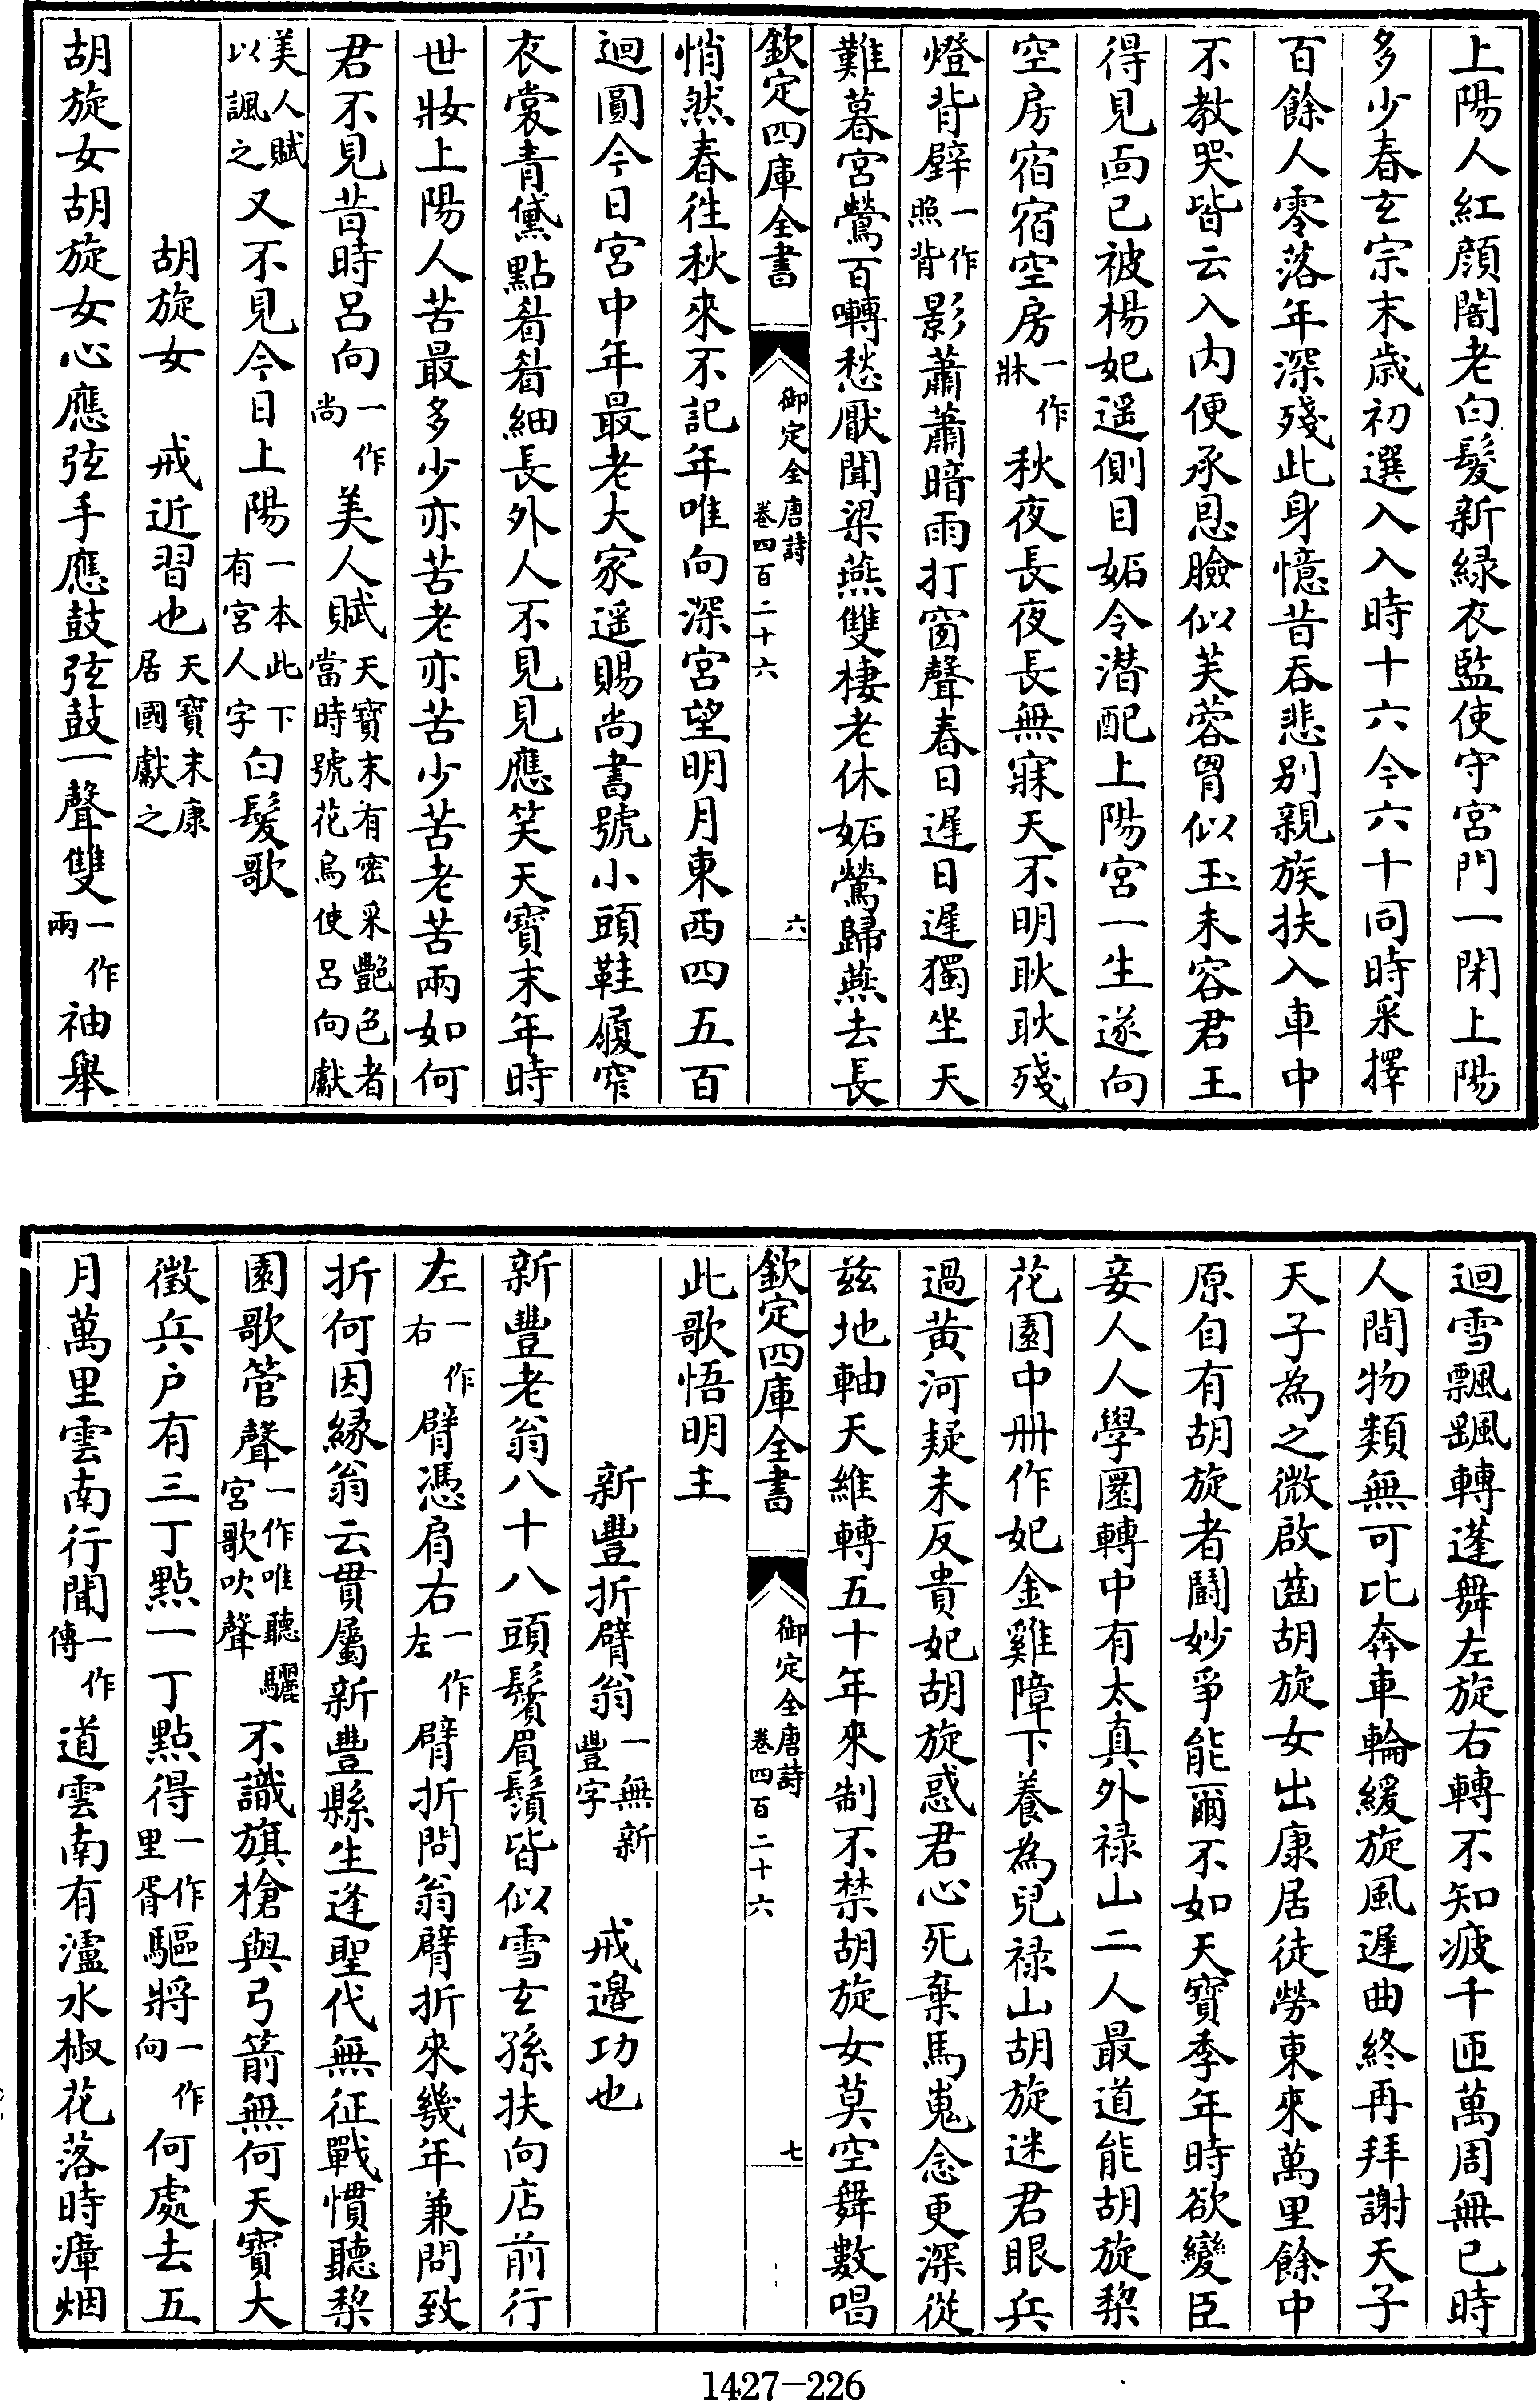 上陽人紅顔闇老白髮新緑衣監使守宮門一閉上陽
多少春玄宗末歲初選入入時十六今六十同時采擇
百餘人零落年深殘此身憶昔吞悲别親族扶入車中
不教哭皆云入内便承恩臉似芙蓉胷似玉未容君王
得見面已被楊妃遥側目妬令潛配上陽宮一生遂向
空房宿宿空房一作牀秋夜長夜長無寐天不明耿耿殘
燈背壁一作照背影蕭蕭暗雨打窗聲春日遲日遲獨坐天
難暮宮鶯百囀愁厭聞梁燕雙棲老休妬鶯歸燕去長
欽定四庫全書 御定全唐詩卷四百二十六 六
悄然春徃秋來不記年唯向深宮望明月東西四五百
迴圓今日宮中年最老大家遥賜尚書號小頭鞋履窄
衣裳青黛點眉眉細長外人不見見應笑天寶末年時
世妝上陽人苦最多少亦苦老亦苦少苦老苦兩如何
君不見昔時呂向一作尚美人賦天寶末有密采艷色者當時號花鳥使呂向獻
美人賦以諷之又不見今日上陽一本此下有宮人字白髮歌
胡旋女 戒近習也天寶末康居國獻之
胡旋女胡旋女心應弦手應鼓弦鼓一聲雙一作兩袖舉
迴雪飄颻轉蓬舞左旋右轉不知疲千匝萬周無已時
人間物類無可比奔車輪緩旋風遲曲終再拜謝天子
天子為之微啟齒胡旋女出康居徒勞東來萬里餘中
原自有胡旋者鬭妙爭能爾不如天寶季年時欲變臣
妾人人學圜轉中有太真外祿山二人最道能胡旋梨
花園中册作妃金雞障下養為兒祿山胡旋迷君眼兵
過黄河疑未反貴妃胡旋惑君心死棄馬嵬念更深從
兹地軸天維轉五十年來制不禁胡旋女莫空舞數唱
欽定四庫全書 御定全唐詩卷四百二十六 七
此歌悟明主
新豐折臂翁一無新豐字 戒邊功也
新豐老翁八十八頭鬢眉鬚皆似雪玄孫扶向店前行
左一作右臂憑肩右一作左臂折問翁臂折來幾年兼問致
折何因緣翁云貫屬新豐縣生逢聖代無征戰慣聽梨
園歌管聲一作唯聽驪宮歌吹聲不識旗槍與弓箭無何天寶大
徵兵戶有三丁點一丁點得一作里胥驅將一作向何處去五
月萬里雲南行聞一作傳道雲南有瀘水椒花落時瘴烟
1427-226